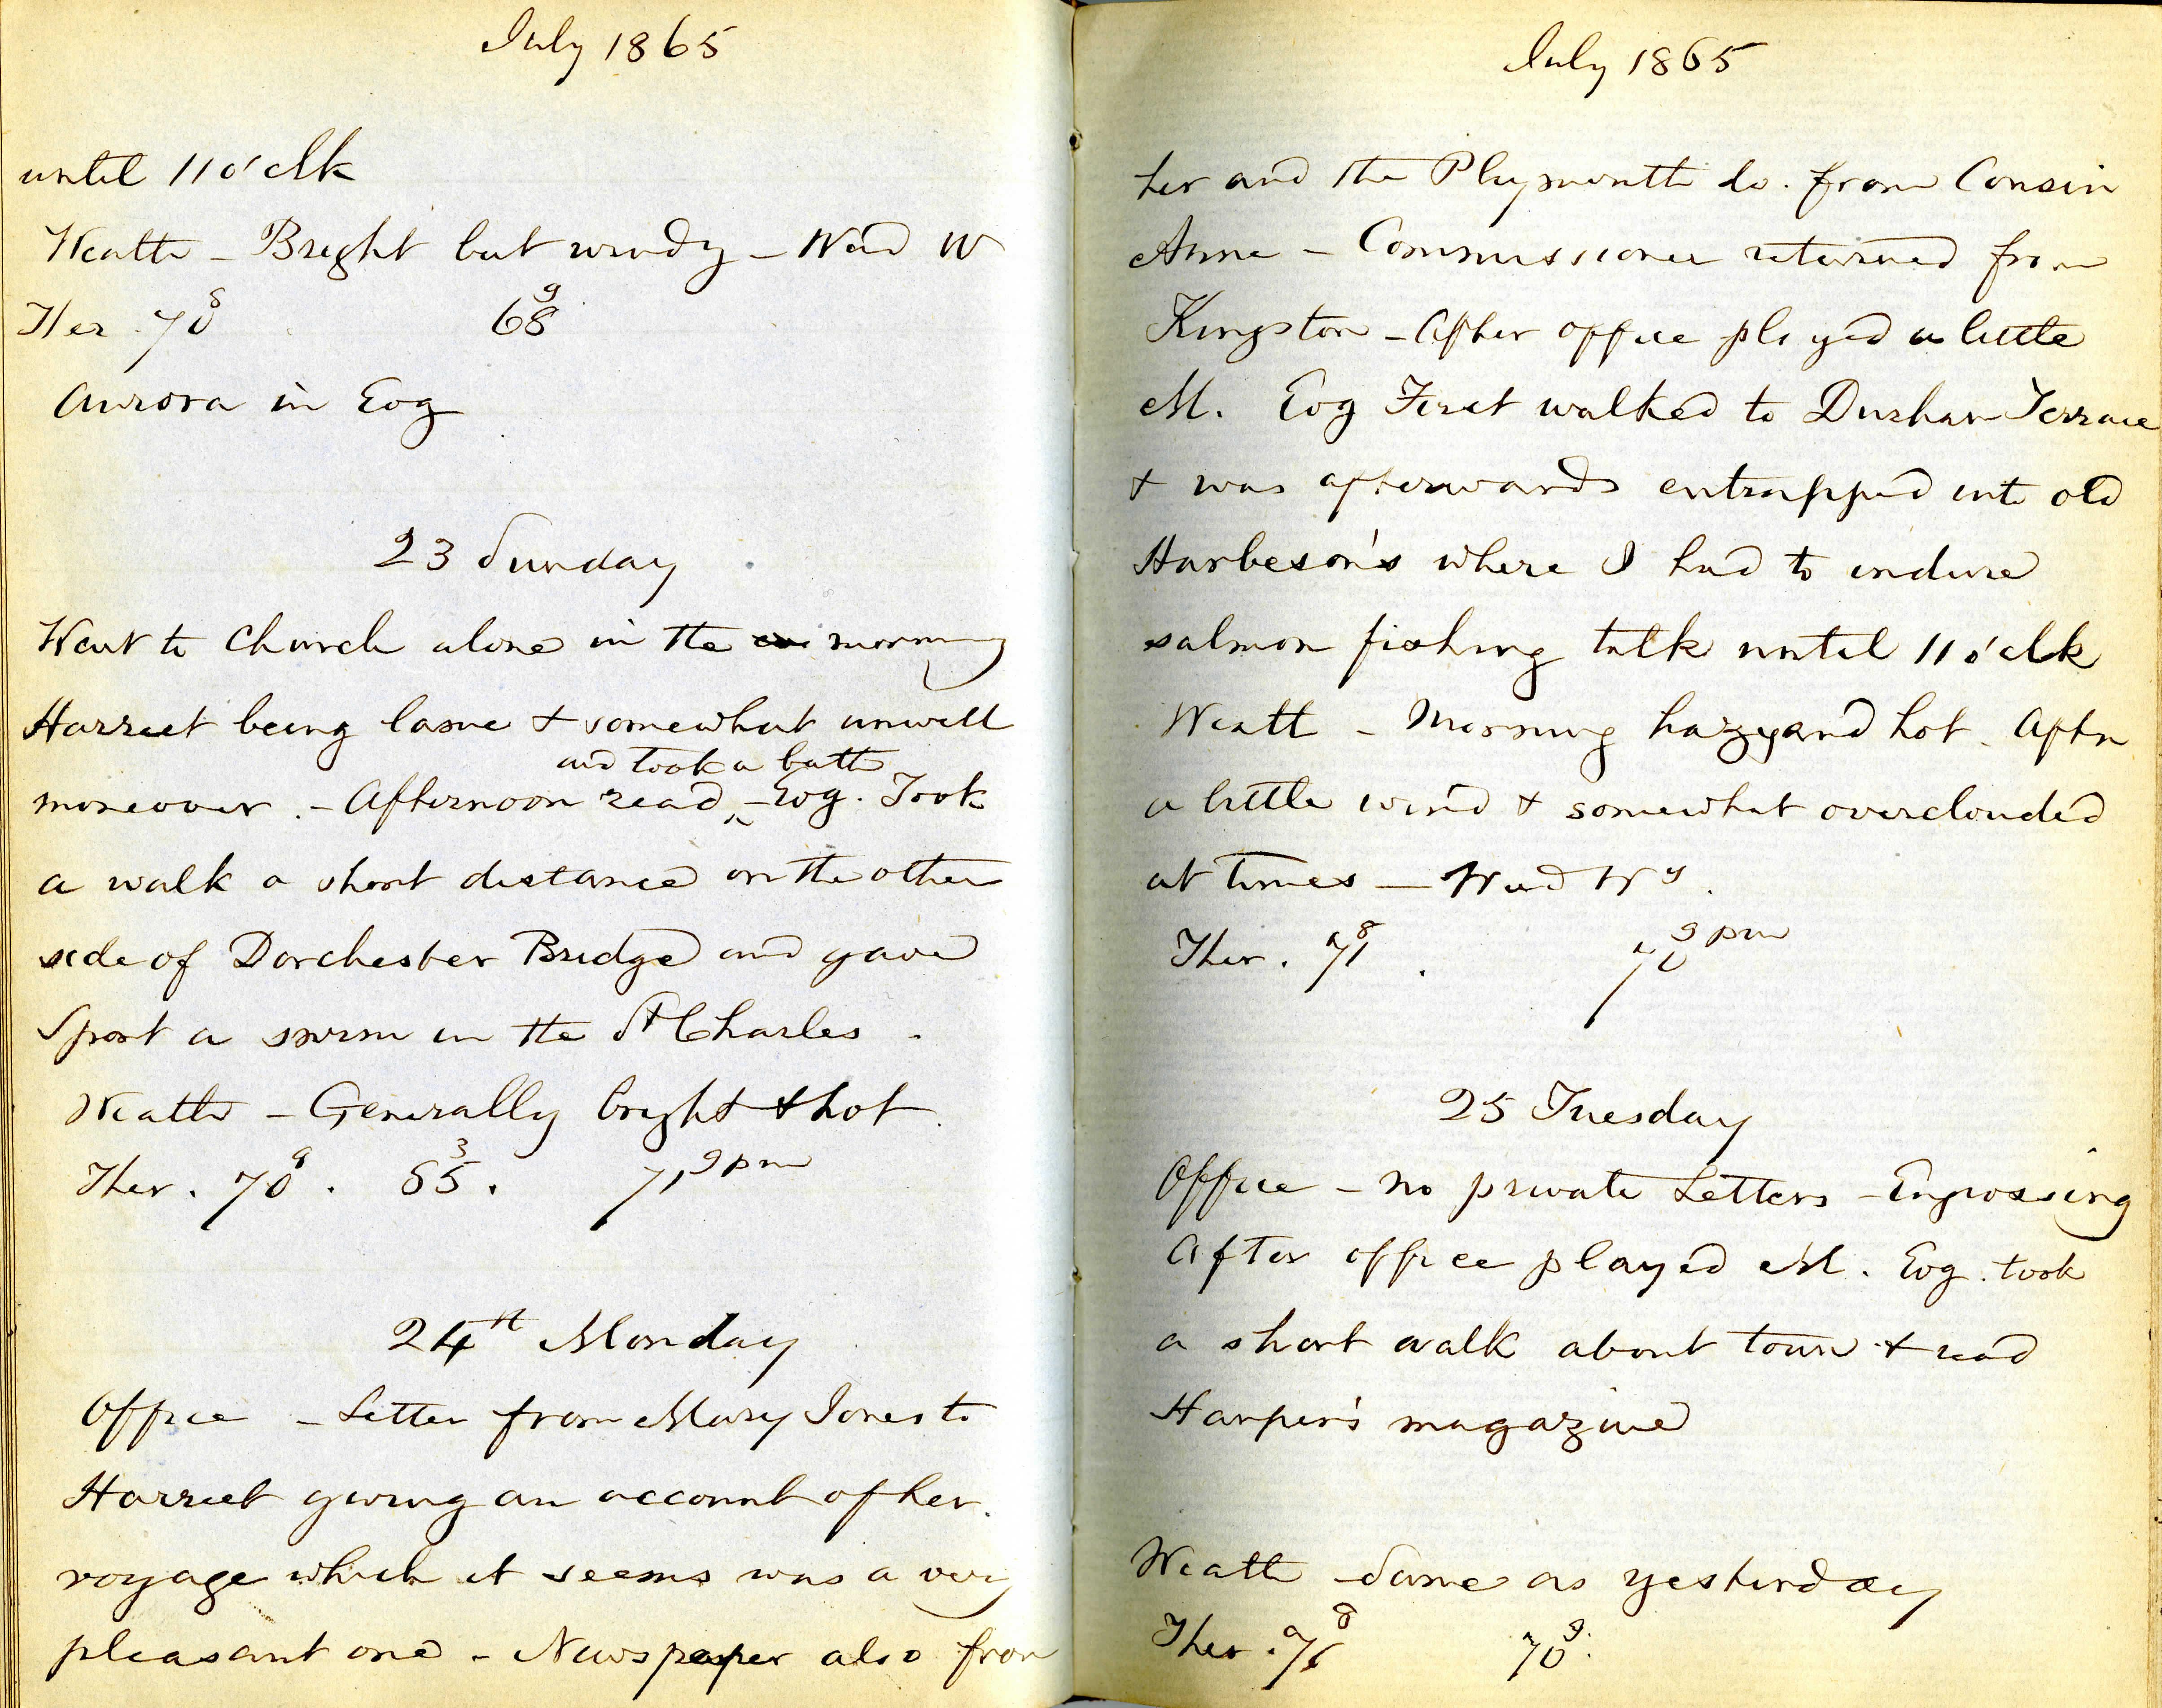 July 1865
until 11 o'clk
Weathr - Bright but windy - Wind W
Ther 70 8 68 9
Aurora in Evg
23 Sunday
Went to Church alone in the morning
Harriet being lame & somewhat unwell
and took a bath
moreover. - Afternoon read ‸ - Evg. Took
a walk a short distance on the other
side of Dorchester Bridge and gave
Sport a swim in the St Charles.
Weathr - Generally bright & hot.
Ther. 70 8. 85 3. 71 9 pm
24th Monday
Office - Letter from Mary Jones to
Harriet giving an account of her
voyage which it seems was a very
pleasant one - Newspaper also from
July 1865
her and the Plymouth do. from Cousin
Anne - Commissioner returned from
Kingston - After office played a little
M. Evg First walked to Durham Terrace
& was afterwards entrapped into old
Harbeson's where I had to endure
salmon fishing talk until 11 o'clk
Weath - Morning hazy and hot. Aftn
a little wind & somewhat overclouded
at times - Wind Wy.
Ther. 71 8. 70 9 pm
25 Tuesday
Office - no private Letters - Engrossing
After office played M. Evg. took
a short walk about town & read
Harper's magazine
Weath - Same as yesterday
Ther. 71 8 70 9.